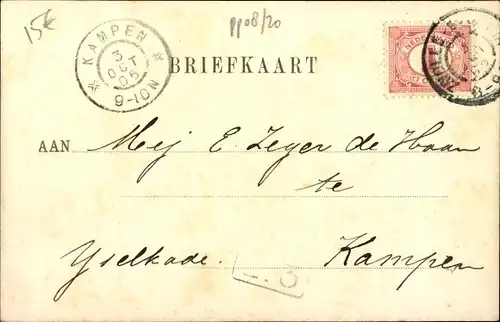 15€
pp08/20
KAMPEN
3
OCT
05
9-10N
BRIEFKAART
AAN Mej E. Zeger de Haan
te
Yselkade. Kampen